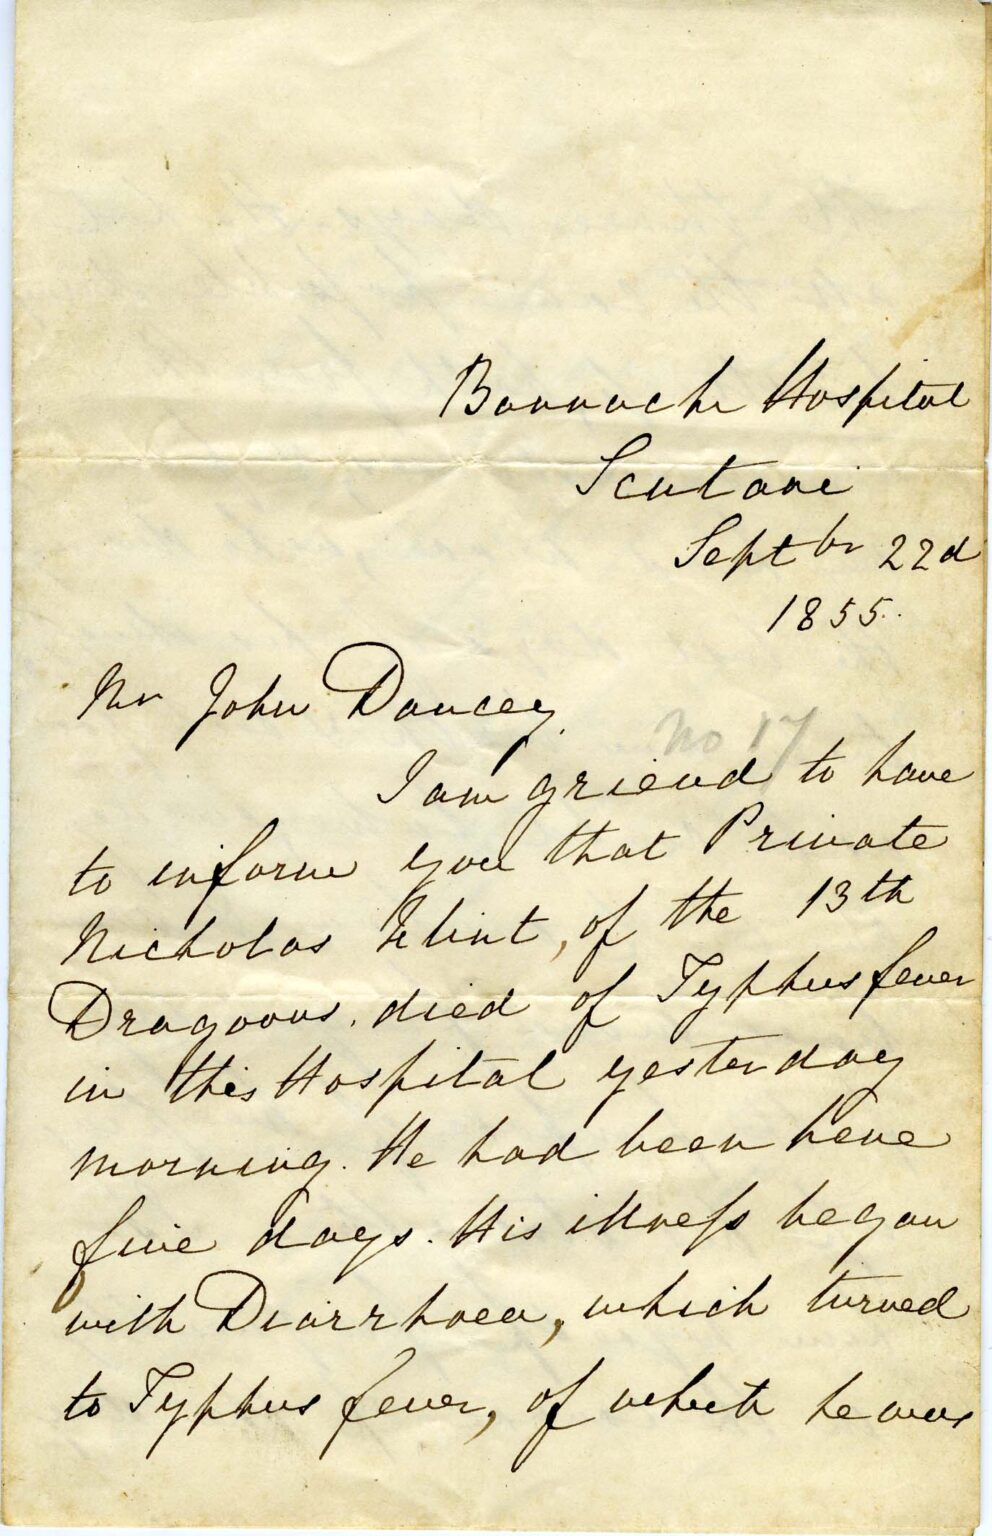 Barrack Hospital
Scutari
Septbr 22d
1855.
Mr John Dancey
No 17
I am grieved to have
to inform you that Private
Nicholas Flint, of the 13th
Dragoons. died of Typhus fever
in this Hospital yesterday
morning. He had been here
five days. His illness began
with Diarrhoea, which turned
to Typhus fever, of which he was